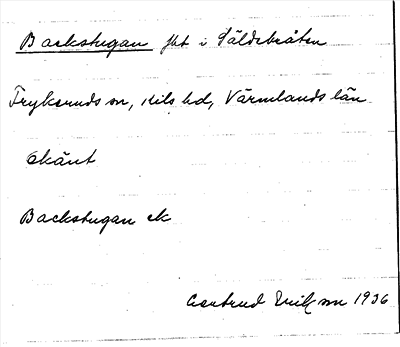 Backstugan fbt i Säldebråten
Fryksunds sn, Kils hd, Värmlands län
Okänt
Backstugan ek
Gertrud Erikson 1936